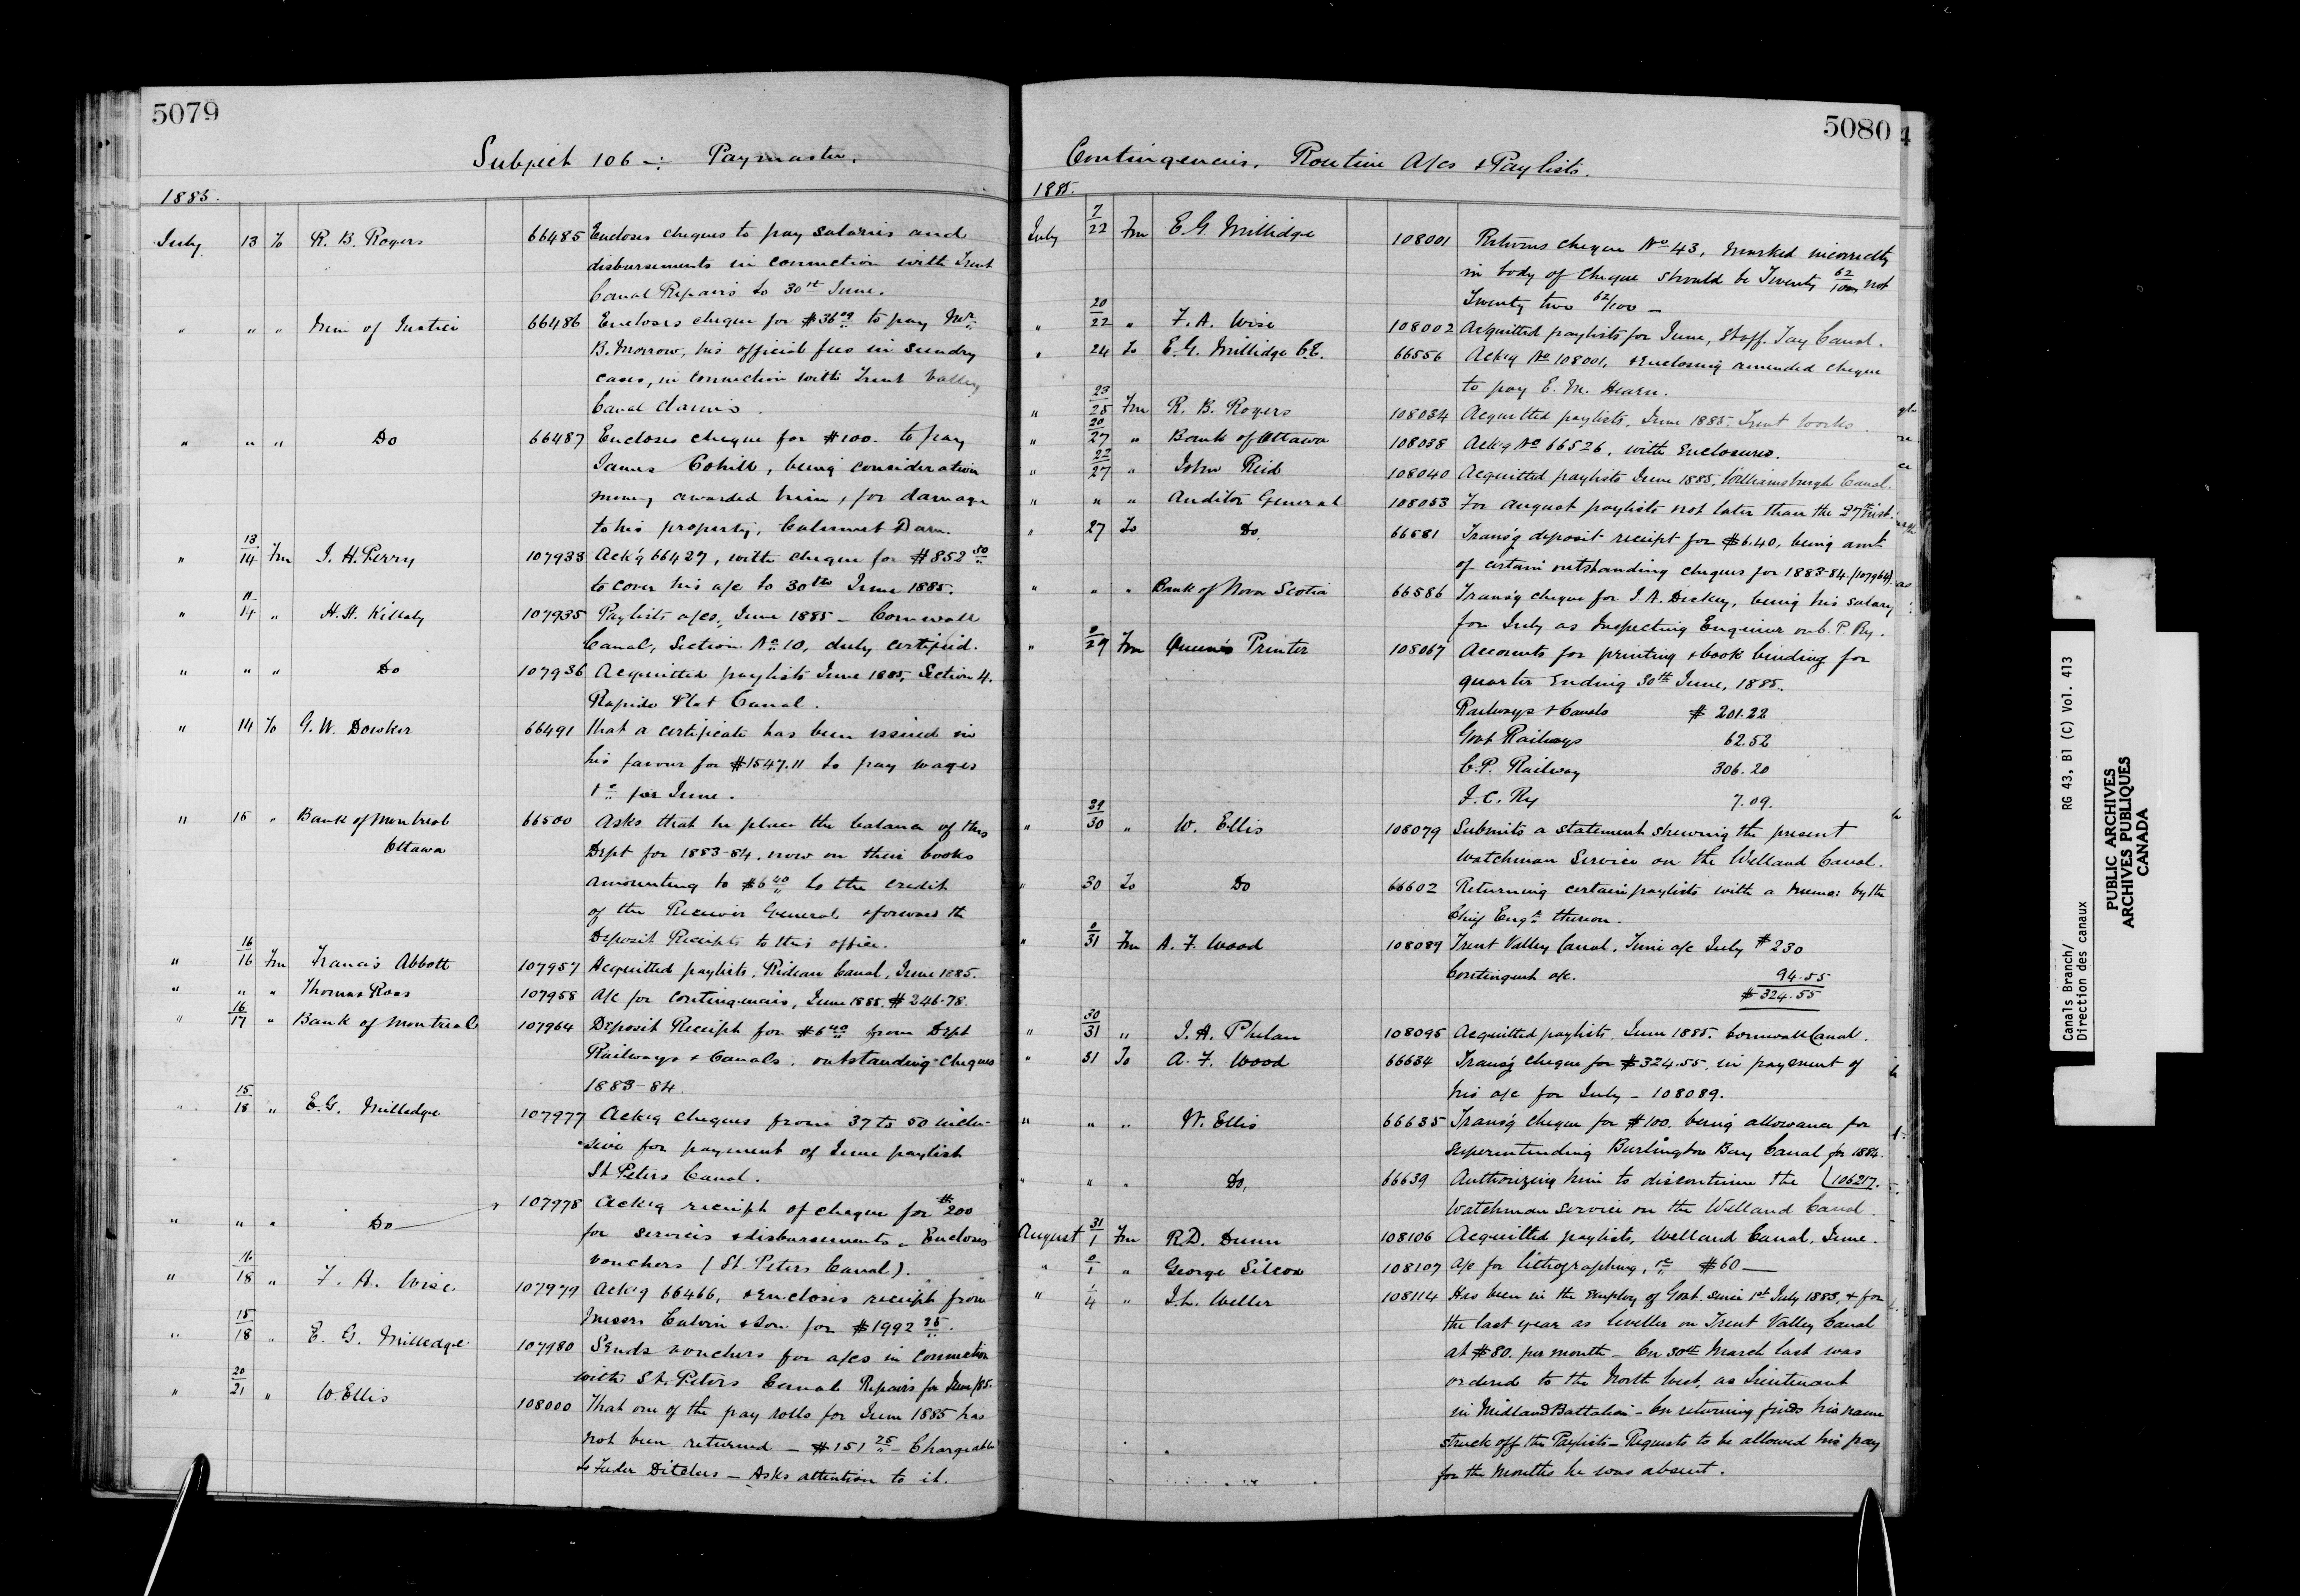 5079
Subject 106 -: Paymaster.
1885.
July 13 To R. B. Rogers 66485 Encloses cheques to pay salaries and
disbursements in connection with Trent
Canal Repairs to 30th June.
" " " Min of Justice 66486 Encloses cheque for $36 09 to pay Mr.
B. Morrow, his official fees in sundry
cases, in connection with Trent Valley
Canal Claims.
" " " Do 66487 Encloses cheque for $100. to pay
James Cahill, being consideration
money awarded him, for damage
to his property, Calumet Dam.
" 13/14 Fm J. H. Perry 107933 Ack'g 66427, with cheque for $852 50
to cover his a/c to 30th June 1885.
" 11/14 " H. H. Killaly 107935 Paylists a/cs, June 1885 - Cornwall
Canal, Section No 10, duly certified.
" " " Do 107936 Acquitted paylists June 1885, Section 4.
Rapide Plat Canal.
" 14 To G. W. Dowker 66491 That a certificate has been issued in
his favour for $1547.11 to pay wages
&c for June.
" 15 " Bank of Montreal 66500 Asks that he place the balance of this
Ottawa Dept for 1883-84, now on their books
amounting to $6 40 to the credit
of the Receiver General & forward the
Deposit Receipts to this office.
" 16/16 Fm Francis Abbott 107957 Acquitted paylists, Rideau Canal, June 1885.
" " " Thomas Ross 107958 A/c for contingencies, June 1885. $246.78.
" 16/17 " Bank of Montreal 107964 Deposit Receipt for $6 40 from Dept
Railways & Canals. outstanding cheques
1883-84.
" 15/18 " E. G. Milledge 107977 Ack'g cheques from 37 to 50 inclu-
sive for payment of June paylist
St Peters Canal.
" " " Do 107978 Ack'g receipt of cheque for $200
for services & disbursements. Encloses
vouchers (St. Peters Canal).
" 16/18 " F. A. Wise 107979 Ack'g 66466, & encloses receipt from
Messrs Calvin & Son for $1992 25.
" 15/18 " E. G. Milledge 107980 Sends vouchers for a/cs in connection
with St. Peters Canal Repairs for June/85.
" 20/21 " W. Ellis 108000 That one of the pay rolls for June 1885 has
not been returned - $151 25 - Chargeable
to Feeder Ditches - Asks attention to it.
5080
Contingencies. Routine A/cs & Paylists.
1885.
July 7/22 Fm E. G. Millidge 108001 Returns cheque No 43, marked incorrectly
in body of cheque should be Twenty 62/100 not
Twenty two 62/100 -
" 20/22 " F. A. Wise 108002 Acquitted paylists for June, Staff. Tay Canal.
" 24 To E. G. Millidge C.E. 66556 Ack'g No 108001, & enclosing amended cheque
to pay E. M. Hearn.
" 23/25 Fm R. B. Rogers 108034 Acquitted paylists, June 1885. Trent works.
" 20/27 " Bank of Ottawa 108038 Ack'g No 66526, with enclosures.
" 22/27 " John Reid 108040 Acquitted paylists June 1885, Williamsburgh Canal.
" " " Auditor General 108053 For August paylists not later than the 27th inst.
" 27 To Do. 66581 Trans'g deposit receipt for $6.40, being amt
of certain outstanding cheques for 1883-84. (107964).
" " " Bank of Nova Scotia 66586 Trans'g cheque for J. A. Dickey, being his salary
for July as Inspecting Engineer on C. P. Ry.
" 0/29 Fm Queen's Printer 108067 Accounts for printing & book binding for
quarter ending 30th June, 1885.
Railways & Canals $ 201.22
Govt Railways 62.52
C.P. Railway 306.20
I. C. Ry 7.09.
" 29/30 " W. Ellis 108079 Submits a statement shewing the present
watchman service on the Welland Canal.
" 30 To Do 66602 Returning certain paylists with a memo: by the
Chief Engr thereon.
" 0/31 Fm A. F. Wood 108089 Trent Valley Canal, Time a/c July $ 230
Contingent a/c. 94.55
$ 324.55
" 30/31 " J. A. Phelan 108095 Acquitted paylists, June 1885. Cornwall Canal.
" 31 To A. F. Wood 66634 Trans'g cheque for $324.55, in payment of
his a/c for July - 108089.
" " " W. Ellis 66635 Trans'g cheque for $100. being allowance for
superintending Burlington Bay Canal for 1884.
" " " Do. 66639 Authorizing him to discontinue the (106217.
watchman service on the Welland Canal.
August 31/1 Fm R.D. Dunn 108106 Acquitted paylists, Welland Canal, June.
" 0/1 " George Silcox 108107 A/c for lithographing, &c $60 -
" 1/4 " J. L. Weller 108114 Has been in the employ of Govt. since 1st July 1883, & for
the last year as Leveller on Trent Valley Canal
at $80. per month - On 30th March last was
ordered to the North West, as Lieutenant
in Midland Battalion - On returning finds his name
struck off the Paylists - Requests to be allowed his pay
for the months he was absent.
Canals Branch/ RG 43, B1 (C) Vol. 413
Direction des canaux
PUBLIC ARCHIVES
ARCHIVES PUBLIQUES
CANADA